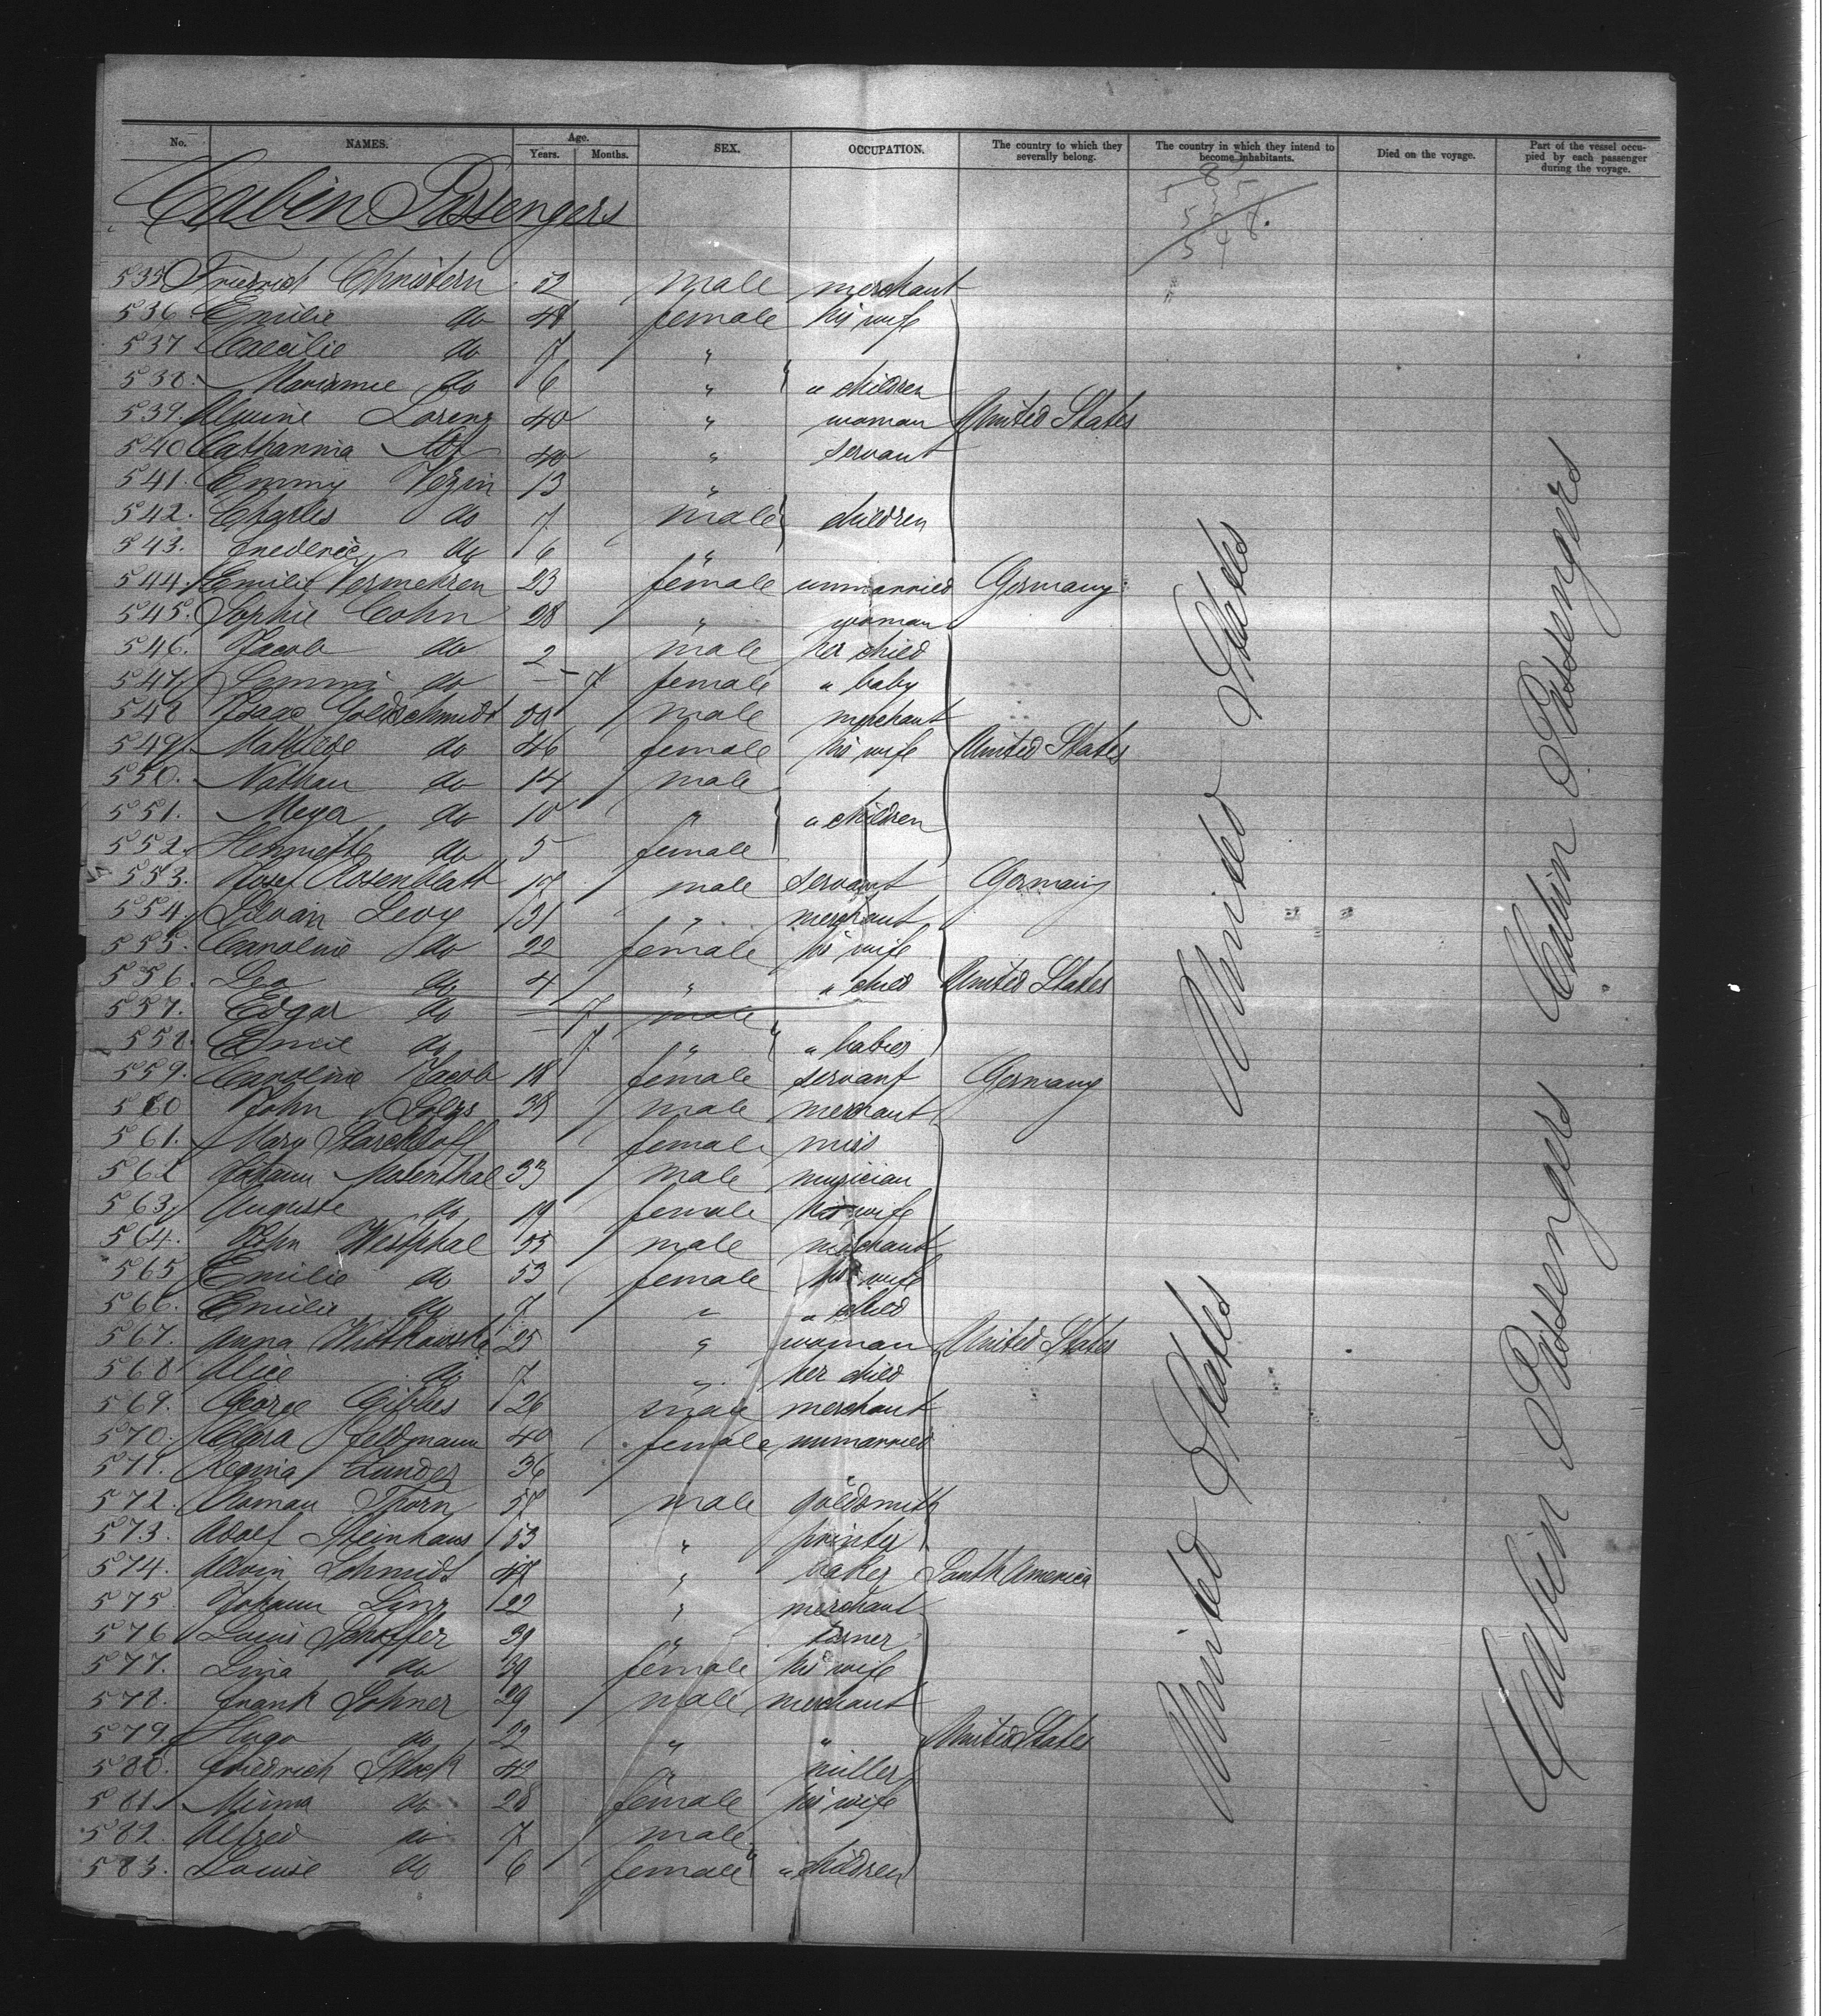 No. NAMES. Age. Years. Months. SEX. OCCUPATION. The country to which they severally belong. The country in which they intend to become inhabitants. Died on the voyage. Part of the vessel occupied by each passenger during the voyage.
Cabin Passengers
535 Friedrich Christern 52 male merchant
536 Emilie do 48 female his wife
537 Caecilie do 7 "
538. Marianne do 6 " " children
539. Alwine Lorenz 40 " woman United States
540 Catharina 40 " servant
541. Emmy Vezin 13 "
542. Charles do 7 male children
543. Frederic do 6 "
544. Emilie Vermehren 23 female unmarried Germany
545. Sophie Cohn 28 " woman
546. Jacob do 2 male her child
547. do — 7 female " baby
548 Isaac Goldschmidt 50 male merchant
549. Mathilde do 46 female his wife United States
550. Nathan do 14 male
551. Meyer do 10 " " children
552. Henriette do 5 female
553. Josef Rosenblatt 17 male servant Germany
554. Silvain Levy 31 " merchant
555. Caroline do 22 female his wife
556. Leo do 4 " " child United States
557. Edgar do — 7 male
558. Emil do — 7 " " babies
559. Caroline Jacob 18 female servant Germany
560 John 38 male merchant
561. Mary Starckloff female miss
562 Johann Mosenthal 33 male musician
563. Auguste do 19 female his wife
564. John Westphal 55 male merchant
565 Emilie do 53 female his wife
566. Emilie do 7 " " child
567. Anna Witthowska 25 " woman United States
568 Alice do 7 " her child
569. George Gibbes 26 male merchant
570. Clara Feldmann 40 female unmarried
571. Regina Zunder 36 "
572. Roman Thorn 57 male goldsmith
573. Adolf Steinhaus 53 " printer
574. Alwin Schmidt 47 " baker South America
575 Johann Linz 22 " merchant
576 Louis Schoffer 39 " turner
577. Lina do 39 female his wife
578. Frank Lohner 29 male merchant
579. Hugo do 22 " " United States
580. Friedrich Stock 42 " miller
581. Minna do 28 female his wife
582. Alfred do 7 male
583. Louise do 6 female " children
United States
United States
Cabin Passengers
Cabin Passengers